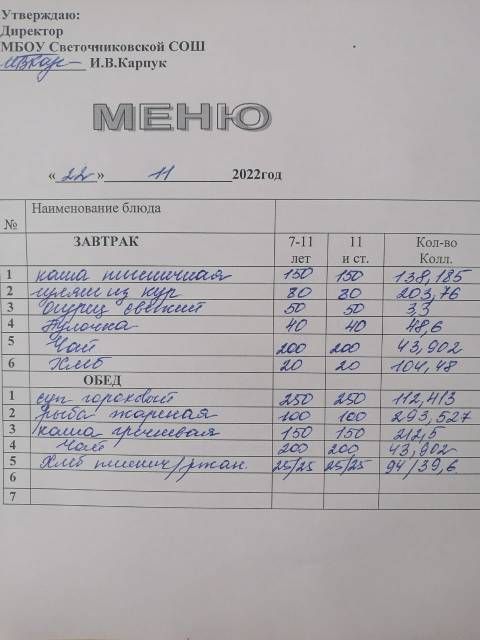 Утверждаю:
Директор
МБОУ Светочниковской СОШ
И.В.Карпук
МЕНЮ
« 22 » 11 2022год
№ Наименование блюда
ЗАВТРАК 7-11 лет 11 и ст. Кол-во Колл.
1 каша пшеничная 150 150 138,185
2 гуляш из кур 80 80 203,76
3 Огурец свежий 50 50 3,3
4 Булочка 40 40 48,6
5 Чай 200 200 43,902
6 Хлеб 20 20 104,48
ОБЕД
1 суп гороховый 250 250 112,413
2 рыба жареная 100 100 293,527
3 каша гречневая 150 150 212,5
4 Чай 200 200 43,902
5 Хлеб пшенич/ржан. 25/25 25/25 94/39,6
6
7